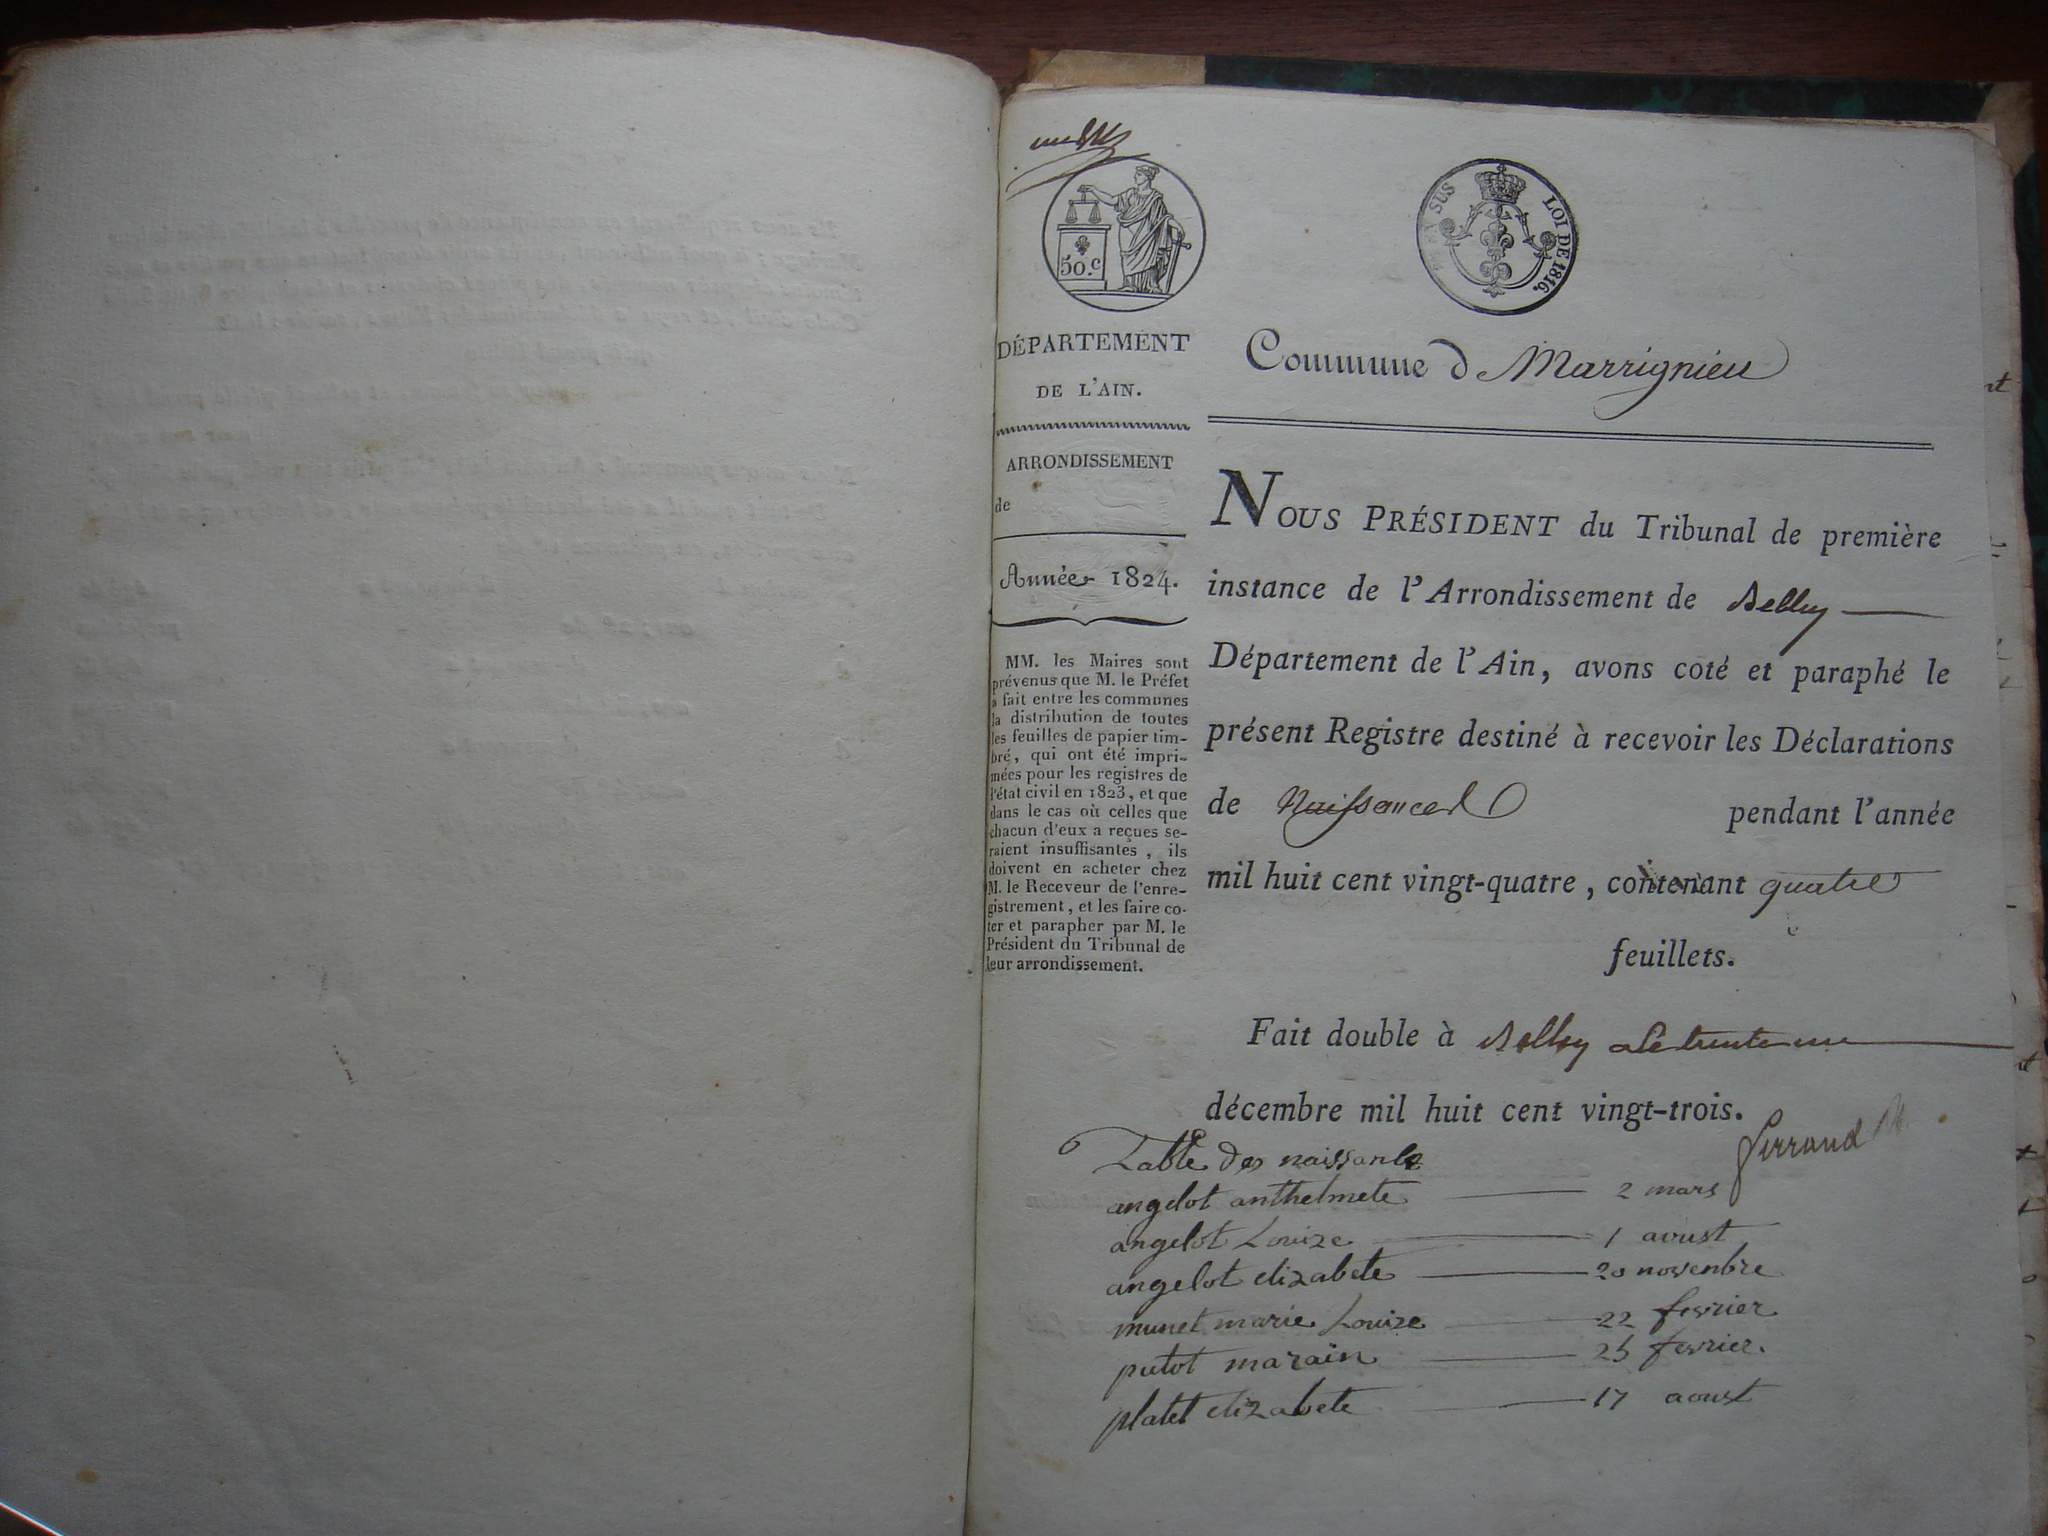 50.c
EN SUS
LOI DE 1816.
DÉPARTEMENT
DE L'AIN.
ARRONDISSEMENT
de
Année 1824.
MM. les Maires sont
prévenus que M. le Préfet
a fait entre les communes
la distribution de toutes
les feuilles de papier tim-
bré, qui ont été impri-
mées pour les registres de
l'état civil en 1823, et que
dans le cas où celles que
chacun d'eux a reçues se-
raient insuffisantes, ils
doivent en acheter chez
M. le Receveur de l'enre-
gistrement, et les faire co-
ter et parapher par M. le
Président du Tribunal de
leur arrondissement.
Commune d Marrignieu
NOUS PRÉSIDENT du Tribunal de première
instance de l'Arrondissement de Belley
Département de l'Ain, avons coté et paraphé le
présent Registre destiné à recevoir les Déclarations
de Naissances pendant l'année
mil huit cent vingt-quatre, contenant quatre
feuillets.
Fait double à Belley Le trente un
décembre mil huit cent vingt-trois.
Ferrand
Table des naissance
angelot anthelmete 2 mars
angelot Louize 1 avust
angelot elizabete 20 novenbre
munet marie Louize 22 fevrier
putot marain 25 fevrier.
platet elizabete 17 aoust